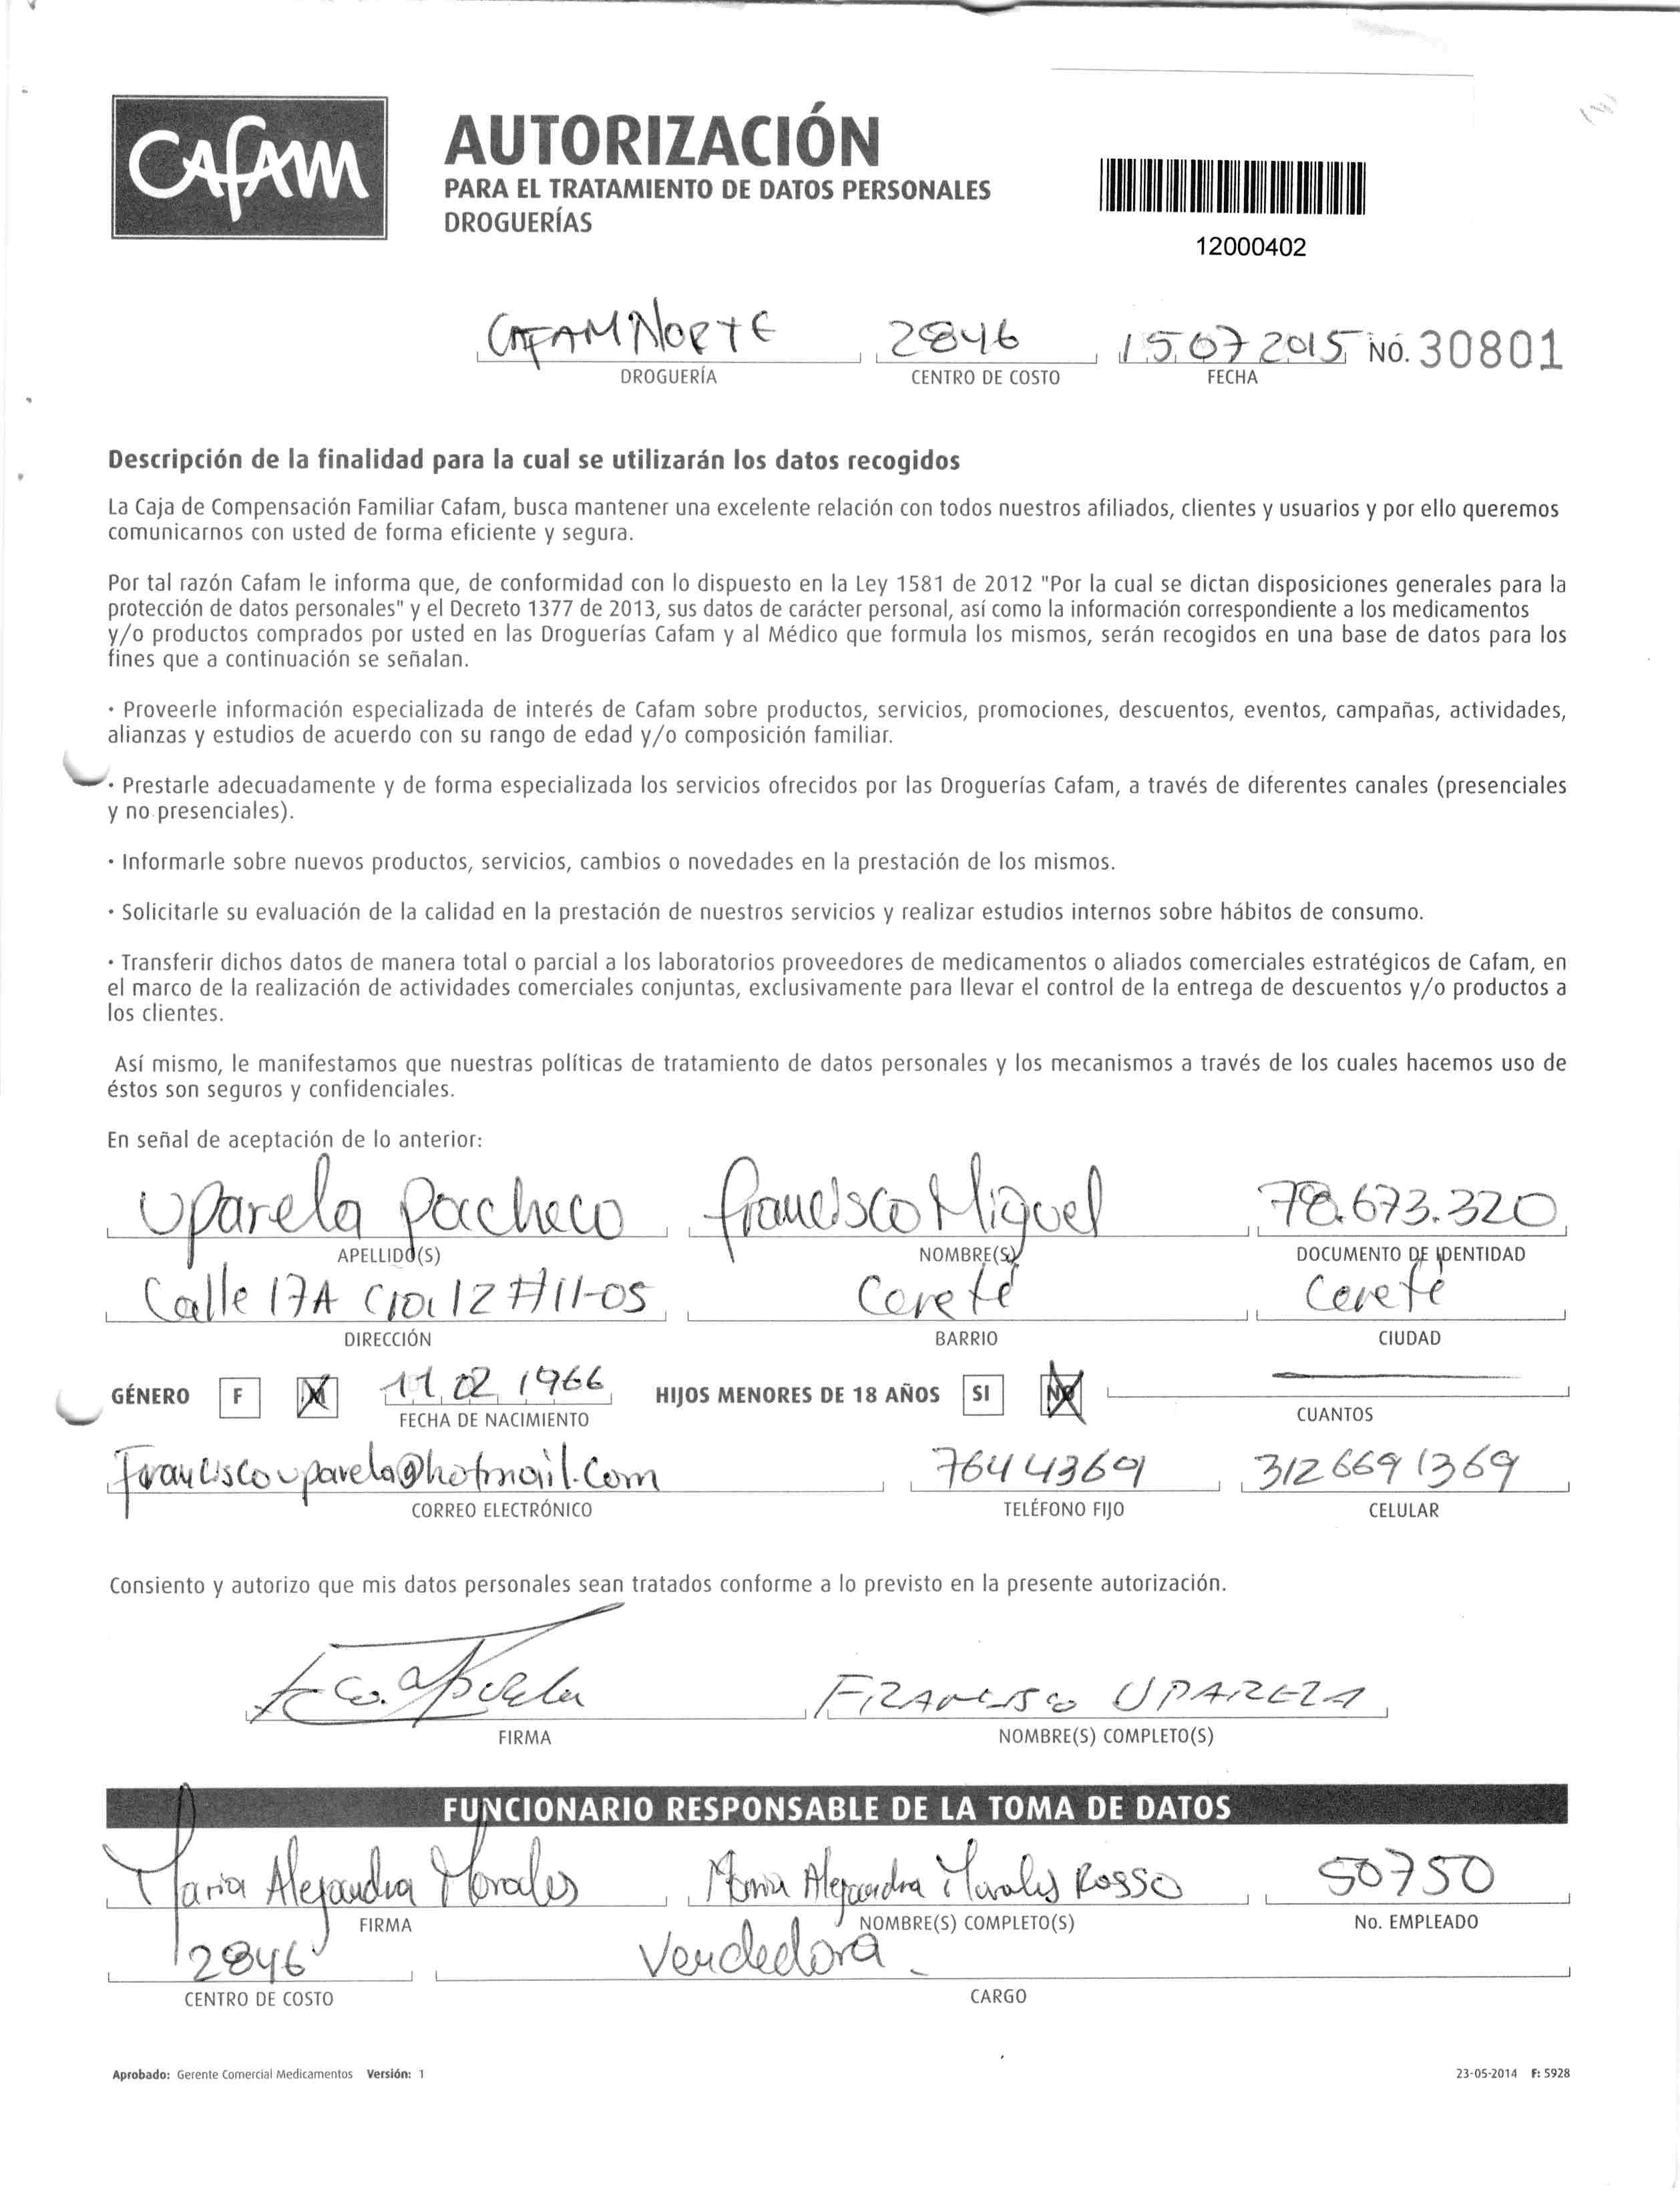 CAFAM
AUTORIZACIÓN
PARA EL TRATAMIENTO DE DATOS PERSONALES
DROGUERÍAS
12000402
CAFAM NORTE 2846 15 07 2015 NO. 30801
DROGUERÍA CENTRO DE COSTO FECHA
Descripción de la finalidad para la cual se utilizarán los datos recogidos
La Caja de Compensación Familiar Cafam, busca mantener una excelente relación con todos nuestros afiliados, clientes y usuarios y por ello queremos
comunicarnos con usted de forma eficiente y segura.
Por tal razón Cafam le informa que, de conformidad con lo dispuesto en la Ley 1581 de 2012 "Por la cual se dictan disposiciones generales para la
protección de datos personales" y el Decreto 1377 de 2013, sus datos de carácter personal, así como la información correspondiente a los medicamentos
y/o productos comprados por usted en las Droguerías Cafam y al Médico que formula los mismos, serán recogidos en una base de datos para los
fines que a continuación se señalan.
· Proveerle información especializada de interés de Cafam sobre productos, servicios, promociones, descuentos, eventos, campañas, actividades,
alianzas y estudios de acuerdo con su rango de edad y/o composición familiar.
· Prestarle adecuadamente y de forma especializada los servicios ofrecidos por las Droguerías Cafam, a través de diferentes canales (presenciales
y no presenciales).
· Informarle sobre nuevos productos, servicios, cambios o novedades en la prestación de los mismos.
· Solicitarle su evaluación de la calidad en la prestación de nuestros servicios y realizar estudios internos sobre hábitos de consumo.
· Transferir dichos datos de manera total o parcial a los laboratorios proveedores de medicamentos o aliados comerciales estratégicos de Cafam, en
el marco de la realización de actividades comerciales conjuntas, exclusivamente para llevar el control de la entrega de descuentos y/o productos a
los clientes.
Así mismo, le manifestamos que nuestras políticas de tratamiento de datos personales y los mecanismos a través de los cuales hacemos uso de
éstos son seguros y confidenciales.
En señal de aceptación de lo anterior:
Uparela Pacheco Francisco Miguel 78.673.320
APELLIDO(S) NOMBRE(S) DOCUMENTO DE IDENTIDAD
Calle 17A Cra 12 #11-05 Cereté Cereté
DIRECCIÓN BARRIO CIUDAD
GÉNERO F M 11 02 1966 HIJOS MENORES DE 18 AÑOS SI NO
FECHA DE NACIMIENTO CUANTOS
Franciscouparela@hotmail.com 7644369 312 6691369
CORREO ELECTRÓNICO TELÉFONO FIJO CELULAR
Consiento y autorizo que mis datos personales sean tratados conforme a lo previsto en la presente autorización.
FRANCISCO UPARELA
FIRMA NOMBRE(S) COMPLETO(S)
FUNCIONARIO RESPONSABLE DE LA TOMA DE DATOS
Maria Alejandra Morales Maria Alejandra Morales Rosso 50750
FIRMA NOMBRE(S) COMPLETO(S) No. EMPLEADO
2846 Vendedora
CENTRO DE COSTO CARGO
Aprobado: Gerente Comercial Medicamentos Versión: 1 23-05-2014 F: 5928